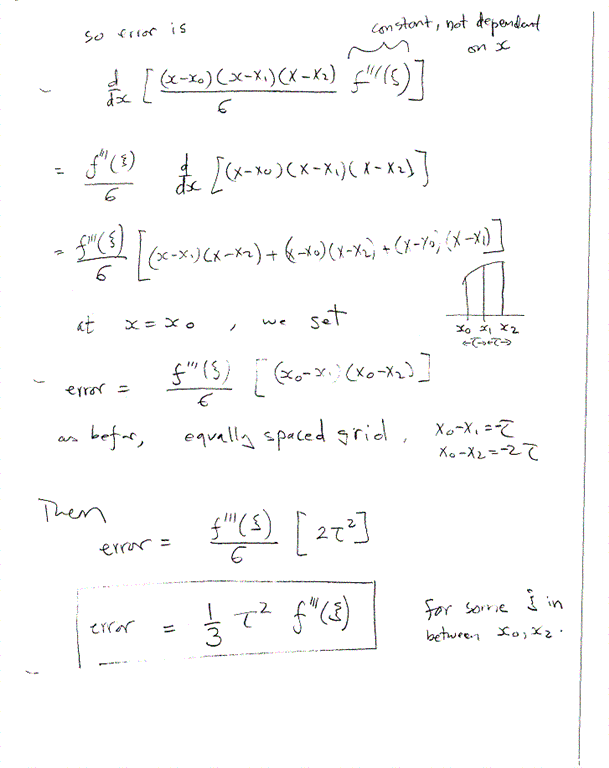 so error is
constant, not dependant
on x
d/dx [ (x-x₀)(x-x₁)(x-x₂)/6 f'''(ξ) ]
= f'''(ξ)/6 d/dx [(x-x₀)(x-x₁)(x-x₂)]
= f'''(ξ)/6 [(x-x₁)(x-x₂) + (x-x₀)(x-x₂) + (x-x₀)(x-x₁)]
x₀ x₁ x₂
←τ→←τ→
at x = x₀ , we set
error = f'''(ξ)/6 [(x₀-x₁)(x₀-x₂)]
as befor, equally spaced grid, x₀-x₁=-τ
x₀-x₂=-2τ
Then
error = f'''(ξ)/6 [2τ²]
error = 1/3 τ² f'''(ξ)
for some ξ in
between x₀, x₂.